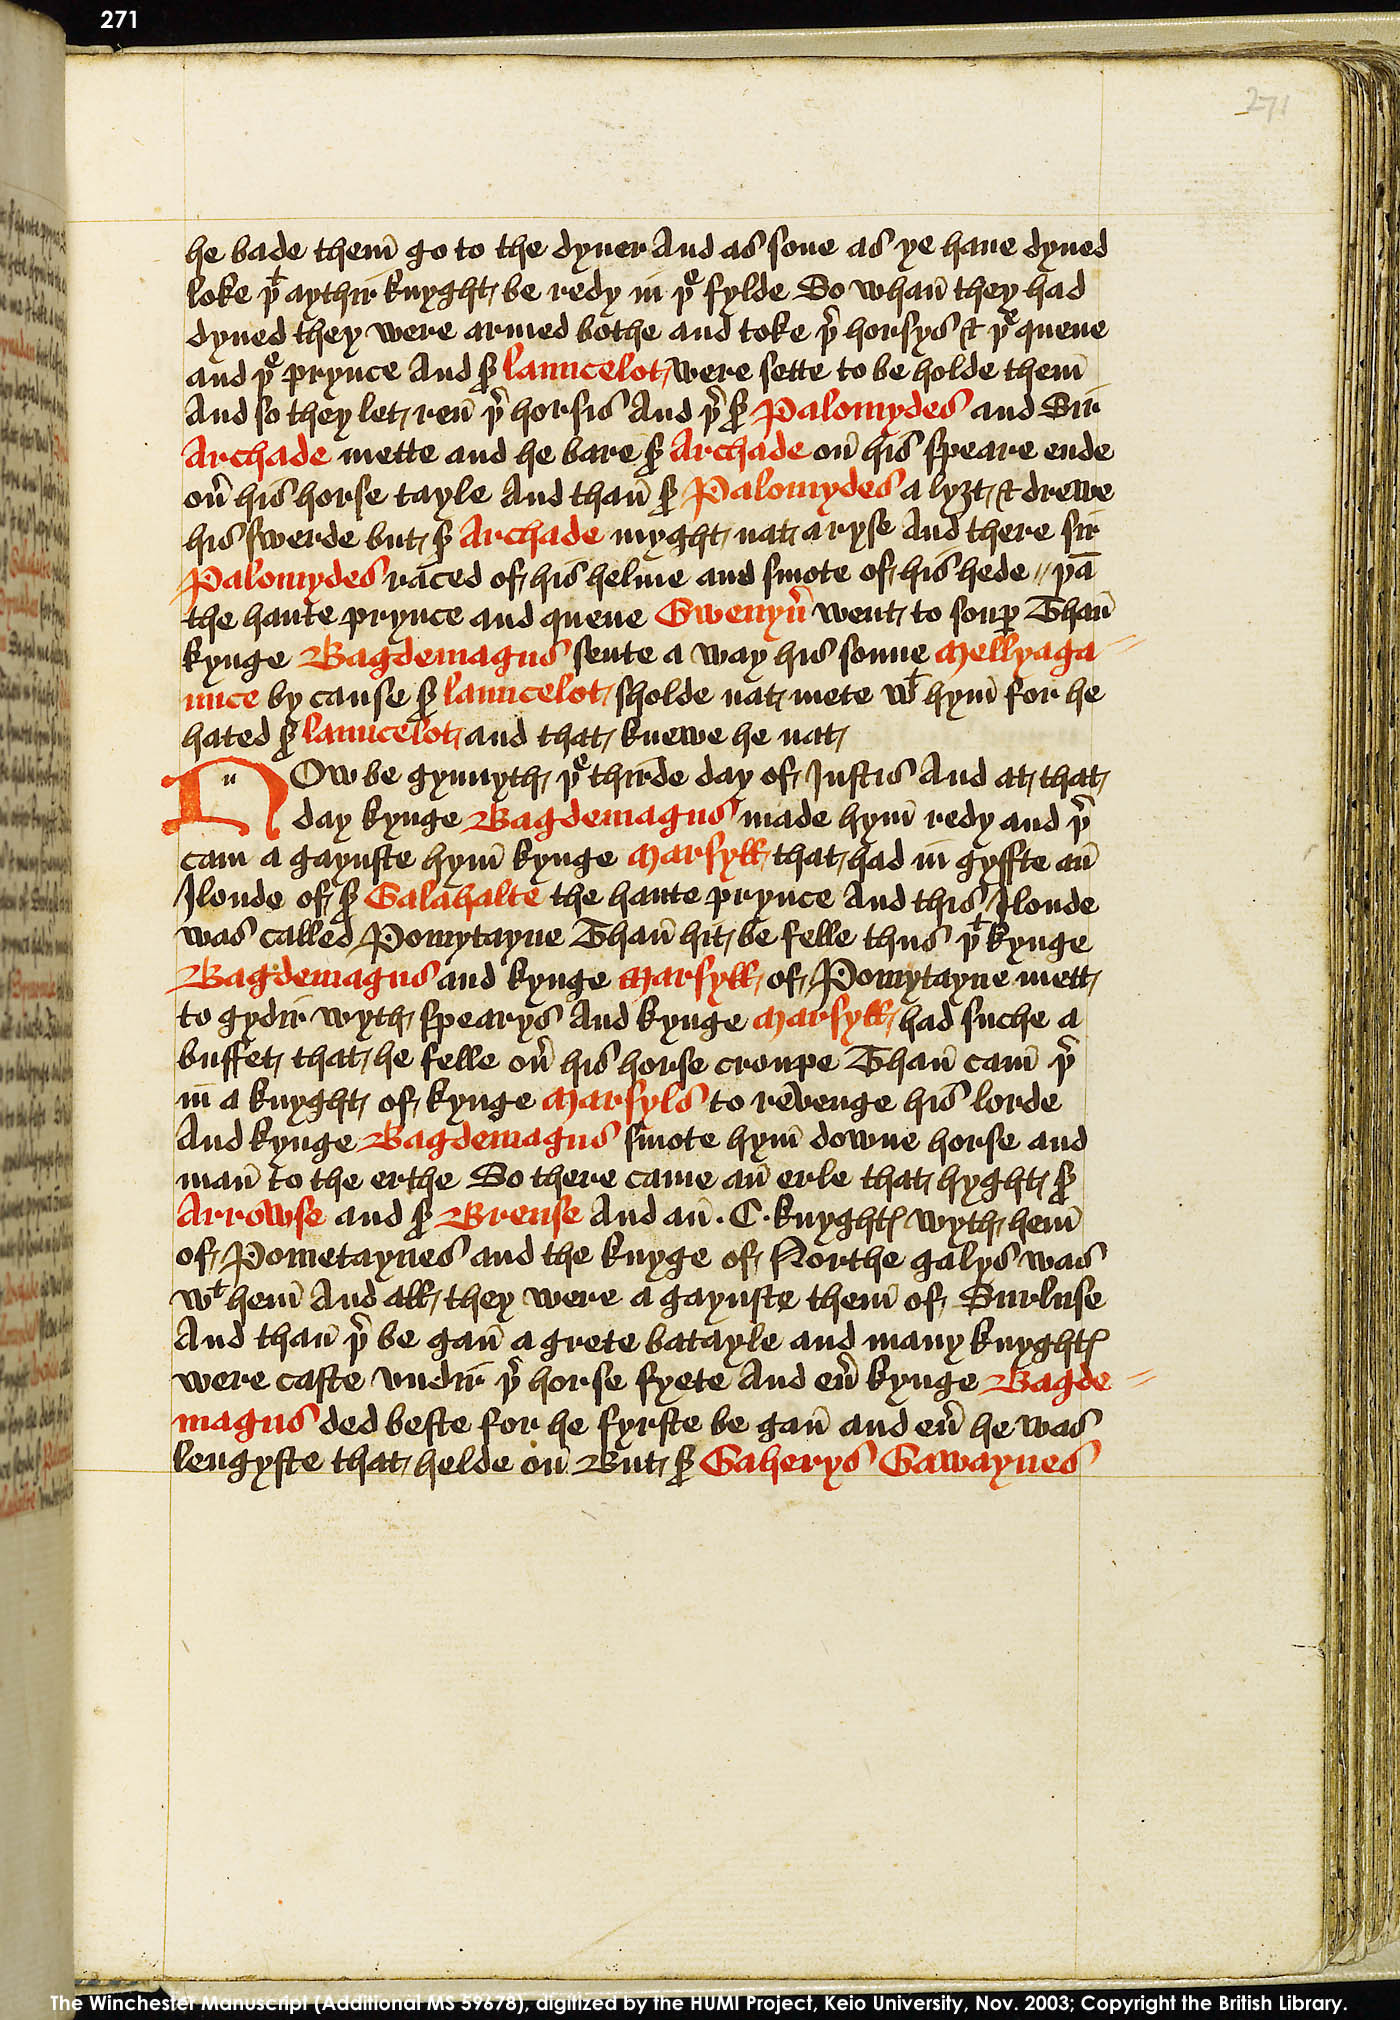 271
271
he bade them̄ go to the dyner And as sone as ye haue dyned
loke þᵗ aythir knyght be redy in þᵉ fylde So whan̄ they had
dyned they were armed bothe and toke þʳ horsys & þᵉ quene
and þᵉ prynce And sʳ launcelot were sette to be holde them̄
And so they let ren̄ þʳ horsis And þʳ sʳ Palomydes and Sir
Archade mette and he bare sʳ Archade on̄ his speare ende
ou̓ his horse tayle And than̄ sʳ Palomydes a lyȝt & drewe
his swerde but sʳ Archade myght nat a ryse And there sir
Palomydes raced of his helme and smote of his hede // þā
the haute prynce and quene Gwenyu̓ went to soup Than̄
kynge Bagdemagus sente a way his sonne Mellyaga
unce by cause sʳ launcelot sholde nat mete wᵗ hym̄ for he
hated sʳ launcelot and that knewe he nat
NOw be gynnyth þᵉ thirde day of Justis And at that
day kynge Bagdemagus made hym̄ redy and þʳ
cam a gaynste hym̄ kynge Marsyll that had in gyffte an̄
Jlonde of sʳ Galahalte the haute prynce And this Jlonde
was called Pomytayne Than̄ hit be felle thus þᵗ kynge
Bagdemagus and kynge Marsyll of Pomytayne mett
to gydir wyth spearys And kynge Marsyll had suche a
buffet that he felle ou̓ his horse croupe Than̄ cam̄ þʳ
in a knyght of kynge Marsyls to revenge his lorde
And kynge Bagdemagus smote hym̄ downe horse and
man̄ to the erthe So there came an̄ erle that hyght sʳ
Arrowse and sʳ Breuse And an̄ · C · knyghtꝭ wyth hem̄
of Pometaynes and the knyge of Northe galys was
wᵗ hem̄ And all they were a gaynste them̄ of Surluse
And than̄ þʳ be gan̄ a grete batayle and many knyghtꝭ
were caste vndir þʳ horse fyete And eu̓ kynge Bagde
magus ded beste for he fyrste be gan̄ and eu̓ he was
lengyste that helde on̄ But sʳ Gaherys Gawaynes
The Winchester Manuscript (Additional MS 59678), digitized by the HUMI Project, Keio University, Nov. 2003; Copyright the British Library.